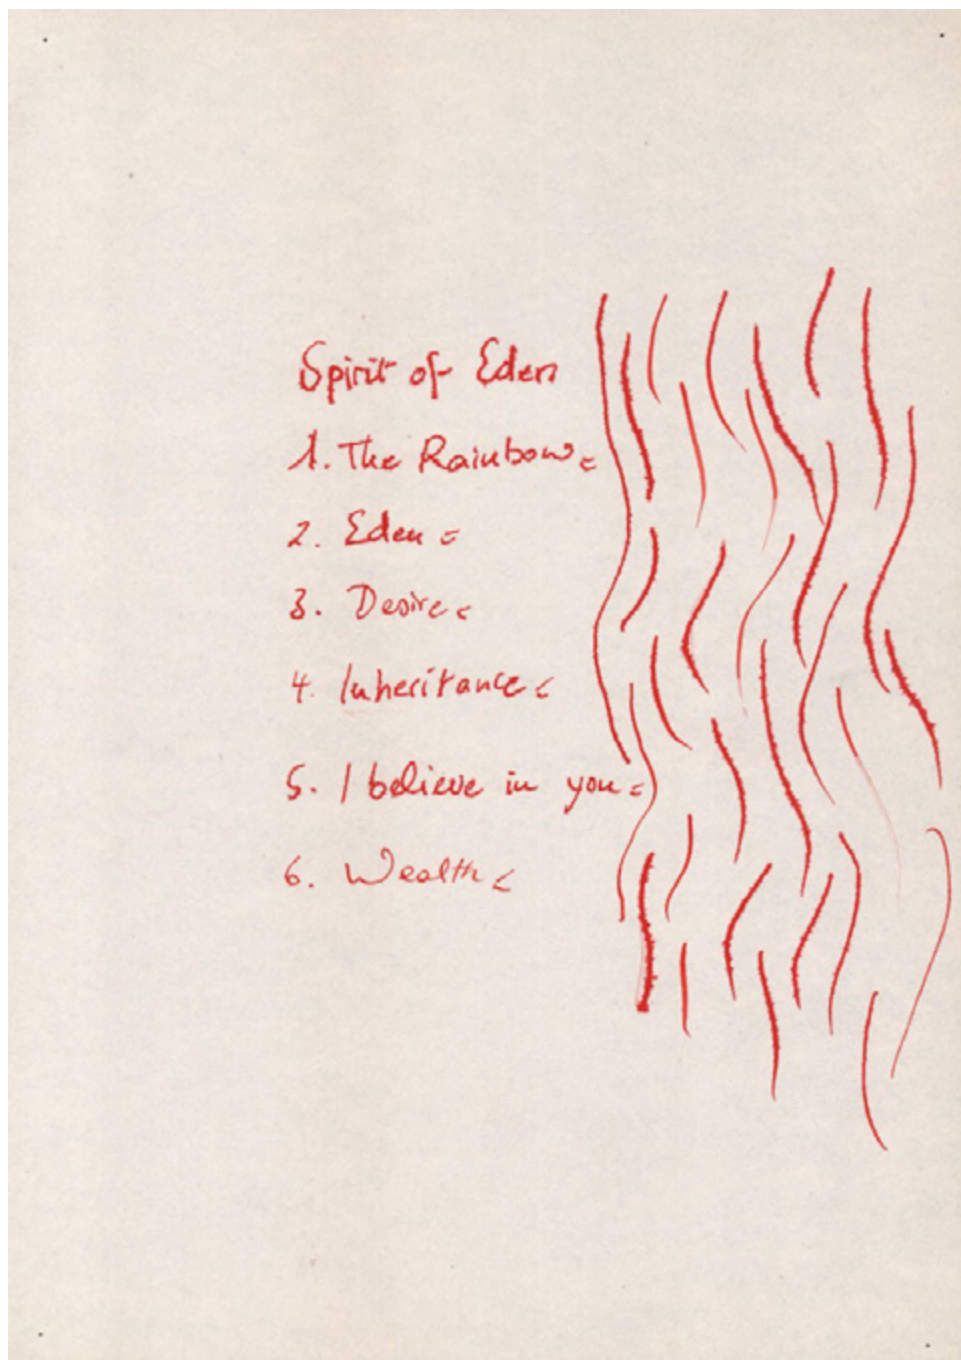 Spirit of Eden
1. The Rainbow =
2. Eden =
3. Desire <
4. Inheritance <
5. I believe in you =
6. Wealth <